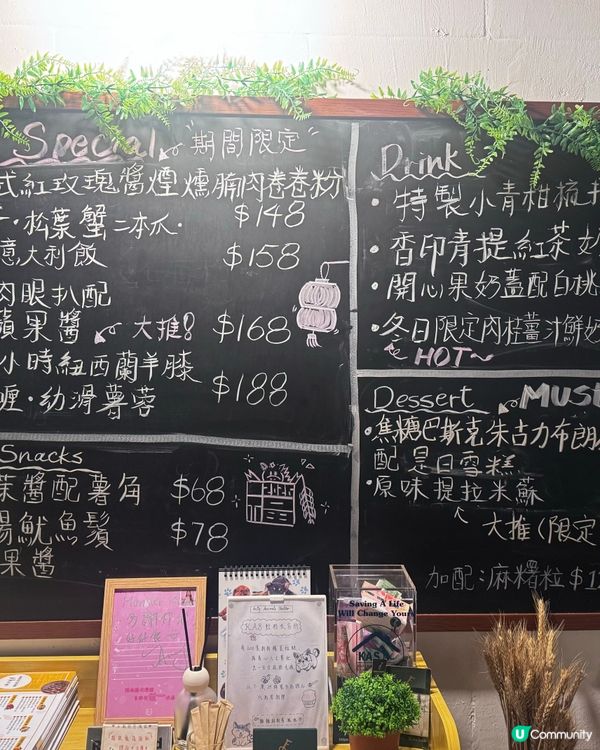 Special "期間限定"
式紅玫瑰醬煙燻腩肉卷卷粉
$148
松葉蟹二本爪
意大利飯 $158
肉眼扒配
蘋果醬 大推 $168
小時紐西蘭羊膝
喱·幼滑薯蓉 $188
Snacks
葉醬配薯角 $68
湯魷魚鬚 $78
果醬
Drink
·特製小青柑梳打
·香印青提紅茶
·開心果奶蓋配白桃
·冬日限定肉桂薑汁鮮奶
HOT~
Dessert MUST
·焦糖巴斯克朱古力布朗
配是日雪糕
·原味提拉米蘇
大推(限定
加配:麻糬粒$1
Saving A Life
Will Change You
KAS
U Community